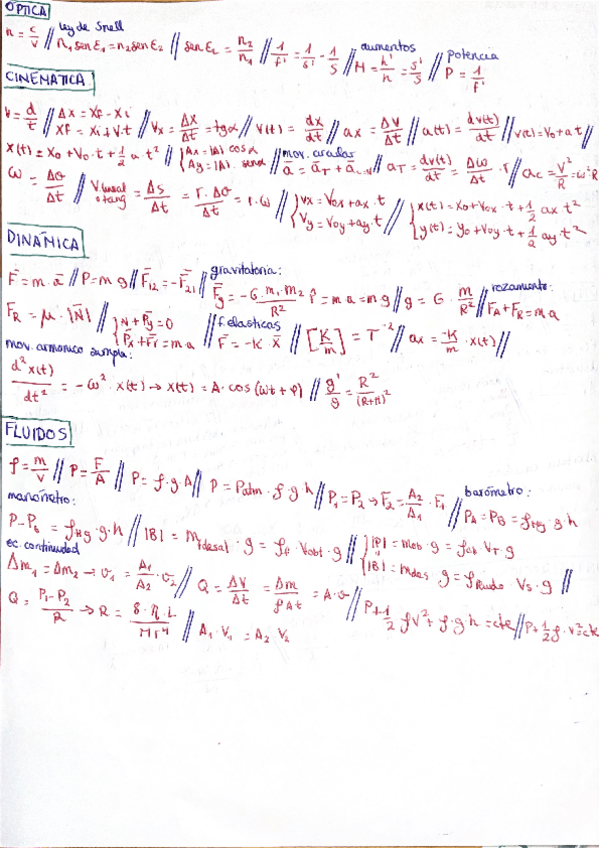 OPTICA
n = c/v // ley de Snell n₁ sen ε₁ = n₂ sen ε₂ // sen εL = n₂/n₁ // 1/f' = 1/s' - 1/s // aumentos M = h'/h = s'/s // potencia P = 1/f'
CINEMÁTICA
v = d/t // Δx = xf - xi xf = xi + v·t // vx = Δx/Δt = tgα // v(t) = dx/dt // ax = Δv/Δt // a(t) = dv(t)/dt // v(t) = v₀ + at //
x(t) = x₀ + v₀·t + 1/2 a·t² // { Ax = |A| cos α Ay = |A|. senα // mov. circular ā = āT + āc // aT = dv(t)/dt = Δω/Δt · r // ac = v²/R = ω²R
ω = Δθ/Δt // v lineal o tang = Δs/Δt = r·Δθ/Δt = r·ω // { vx = v₀x + ax·t vy = v₀y + ay·t // { x(t) = x₀ + v₀x·t + 1/2 ax t² y(t) = y₀ + v₀y·t + 1/2 ay t²
DINÁMICA
F̄ = m·ā // P = m g // F̄₁₂ = -F̄₂₁ // gravitatoria: F̄g = -G·m₁·m₂/R² r̂ = m a = m g // g = G·m/R² // rozamiento: FA + FR = m a
FR = μ·|N̄| // { N + Py = 0 Px + Fr = m a // f. elasticas F̄ = -K·x̄ // [K/m] = T⁻² // ax = -K/m · x(t) //
mov. armonico simple:
d²x(t)/dt² = -ω²·x(t) → x(t) = A·cos(ωt + φ) // g'/g = R²/(R+H)²
FLUIDOS
ρ = m/v // P = F/A // P = ρ·g·h // P = Patm·ρ·g·h // P₁ = P₂ → F₂ = A₂/A₁ · F₁ // barómetro: PA = PB = ρHg·g·h
manómetro:
P - P₀ = ρHg·g·h // |B| = mfdesal·g = ρf·Vobt·g // { |P| = mob·g = ρob VT·g |B| = mdes·g = ρfluido Vs·g //
ec. continuidad
Δm₁ = Δm₂ → v₁ = A₁/A₂·v₂ // Q = ΔV/Δt = Δm/ρΔt = A·v // P + 1/2 ρv² + ρ·g·h = cte // P + 1/2 ρ·v² = cte
Q = P₁-P₂/R → R = 8·η·L/πr⁴ // A₁·V₁ = A₂ V₂